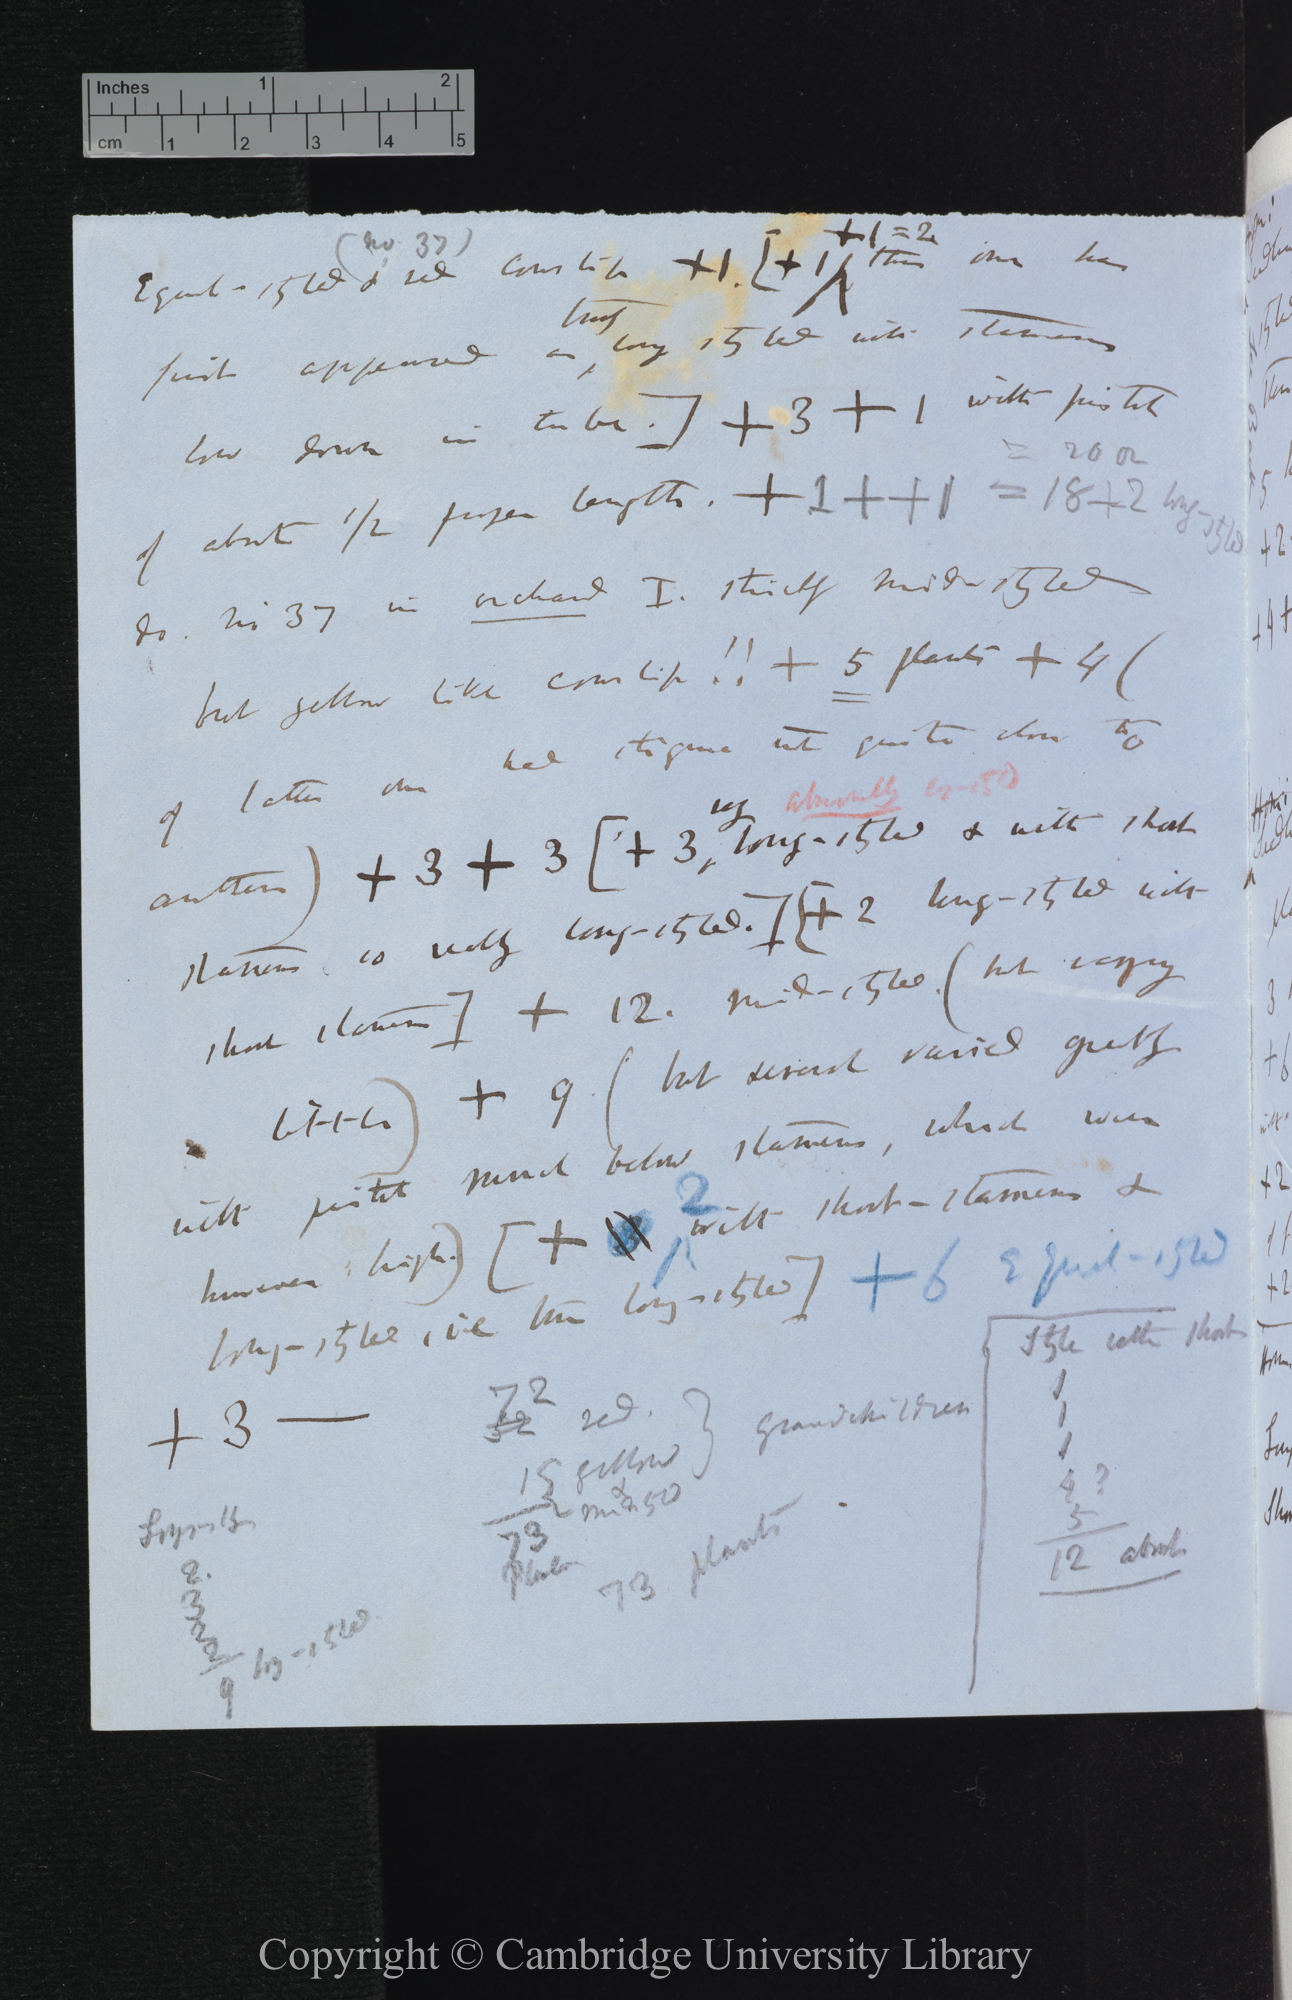 Inches 1 2
cm 1 2 3 4 5
(no. 37)
+1 = 2
Equal-styled & red Cowslip +1. [+1 this one has
first appeared as truly long styled with stamens
low down in tube.] + 3 + 1 with pistil
= 20 or
of about 1/2 proper length. + 1 + + 1 = 18 + 2 long-styled
do. No 37 in orchard I. strictly mid-styled
but yellow like cowslip!! + 5 plants + 4 (
of latter one had stigma not quite close to
absolutely long-styled
anthers) + 3 + 3 [+ 3 very long-styled & with short
stamens so really long-styled.] [+ 2 long-styled with
short stamens] + 12. mid-styled. (but varying
little) + 9. (but several varied greatly
with pistil much below stamens, which were
2
however high.) [+ with short-stamens &
long-styled, ie true long-styled] + 6 Equal-styled
+ 3 —
72 red.
15 yellow
& mid-styled
73
plants
grandchildren
73 plants
Style with short
1
1
1
4?
5
12 about
2
3
2
2
9 long-styled
Copyright © Cambridge University Library